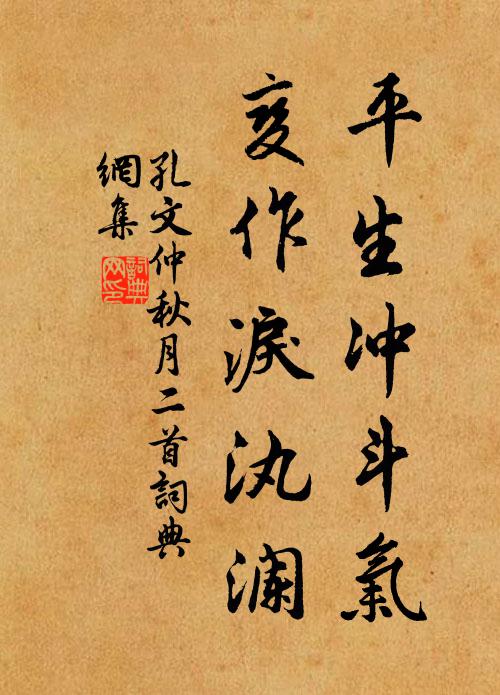 平生冲斗氣
变作淚汍澜
孔文仲秋月二首詞典
網集
詞典
网印